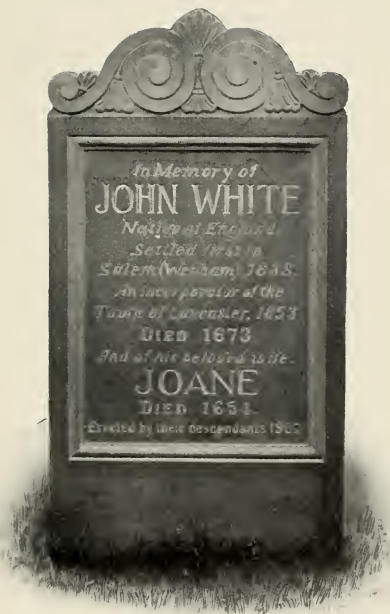 In Memory of
JOHN WHITE
Native of England
Settled first in
Salem (Wenham) 1638.
An incorporator of the
Town of Lancaster, 1653
DIED 1673
And of his beloved wife.
JOANE
DIED 1654.
Erected by their descendants